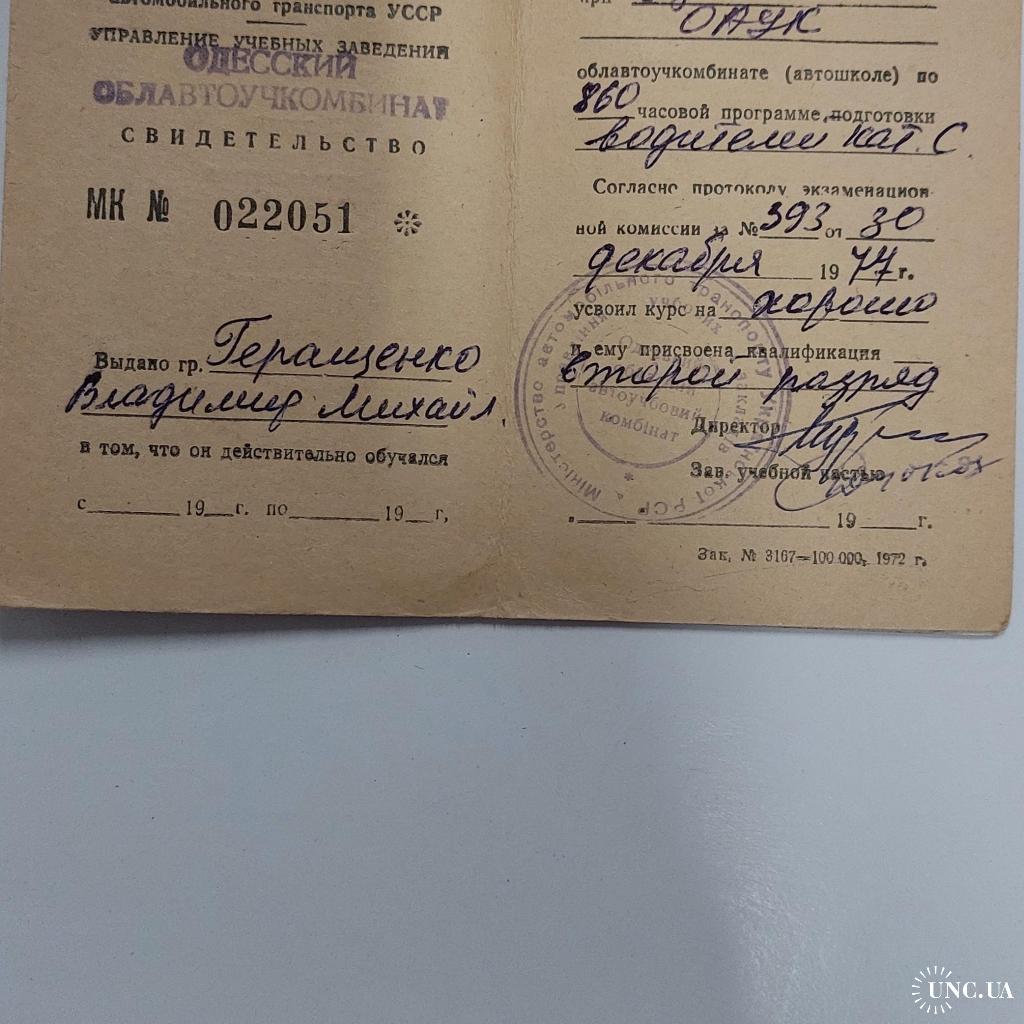 автомобильного транспорта УССР
УПРАВЛЕНИЕ УЧЕБНЫХ ЗАВЕДЕНИЙ
ОДЕССКИЙ
ОБЛАВТОУЧКОМБИНАТ
СВИДЕТЕЛЬСТВО
МК № 022051
Выдано гр. Геращенко
Владимир Михайл.
в том, что он действительно обучался
с 19 г. по 19 г,
при
ОАУК
облавтоучкомбинате (автошколе) по
860 часовой программе подготовки
водителей кат. С
Согласно протоколу экзаменацион-
ной комиссии за № 393 от 30
декабря 1977 г.
усвоил курс на хорошо
и ему присвоена квалификация
второй разряд
Директор
Зав. учебной частью
19 г.
Зак. № 3167—100 000, 1972 г.
Міністерство автомобільного транспорту Української РСР
автоучбовий
комбінат
UNC.UA